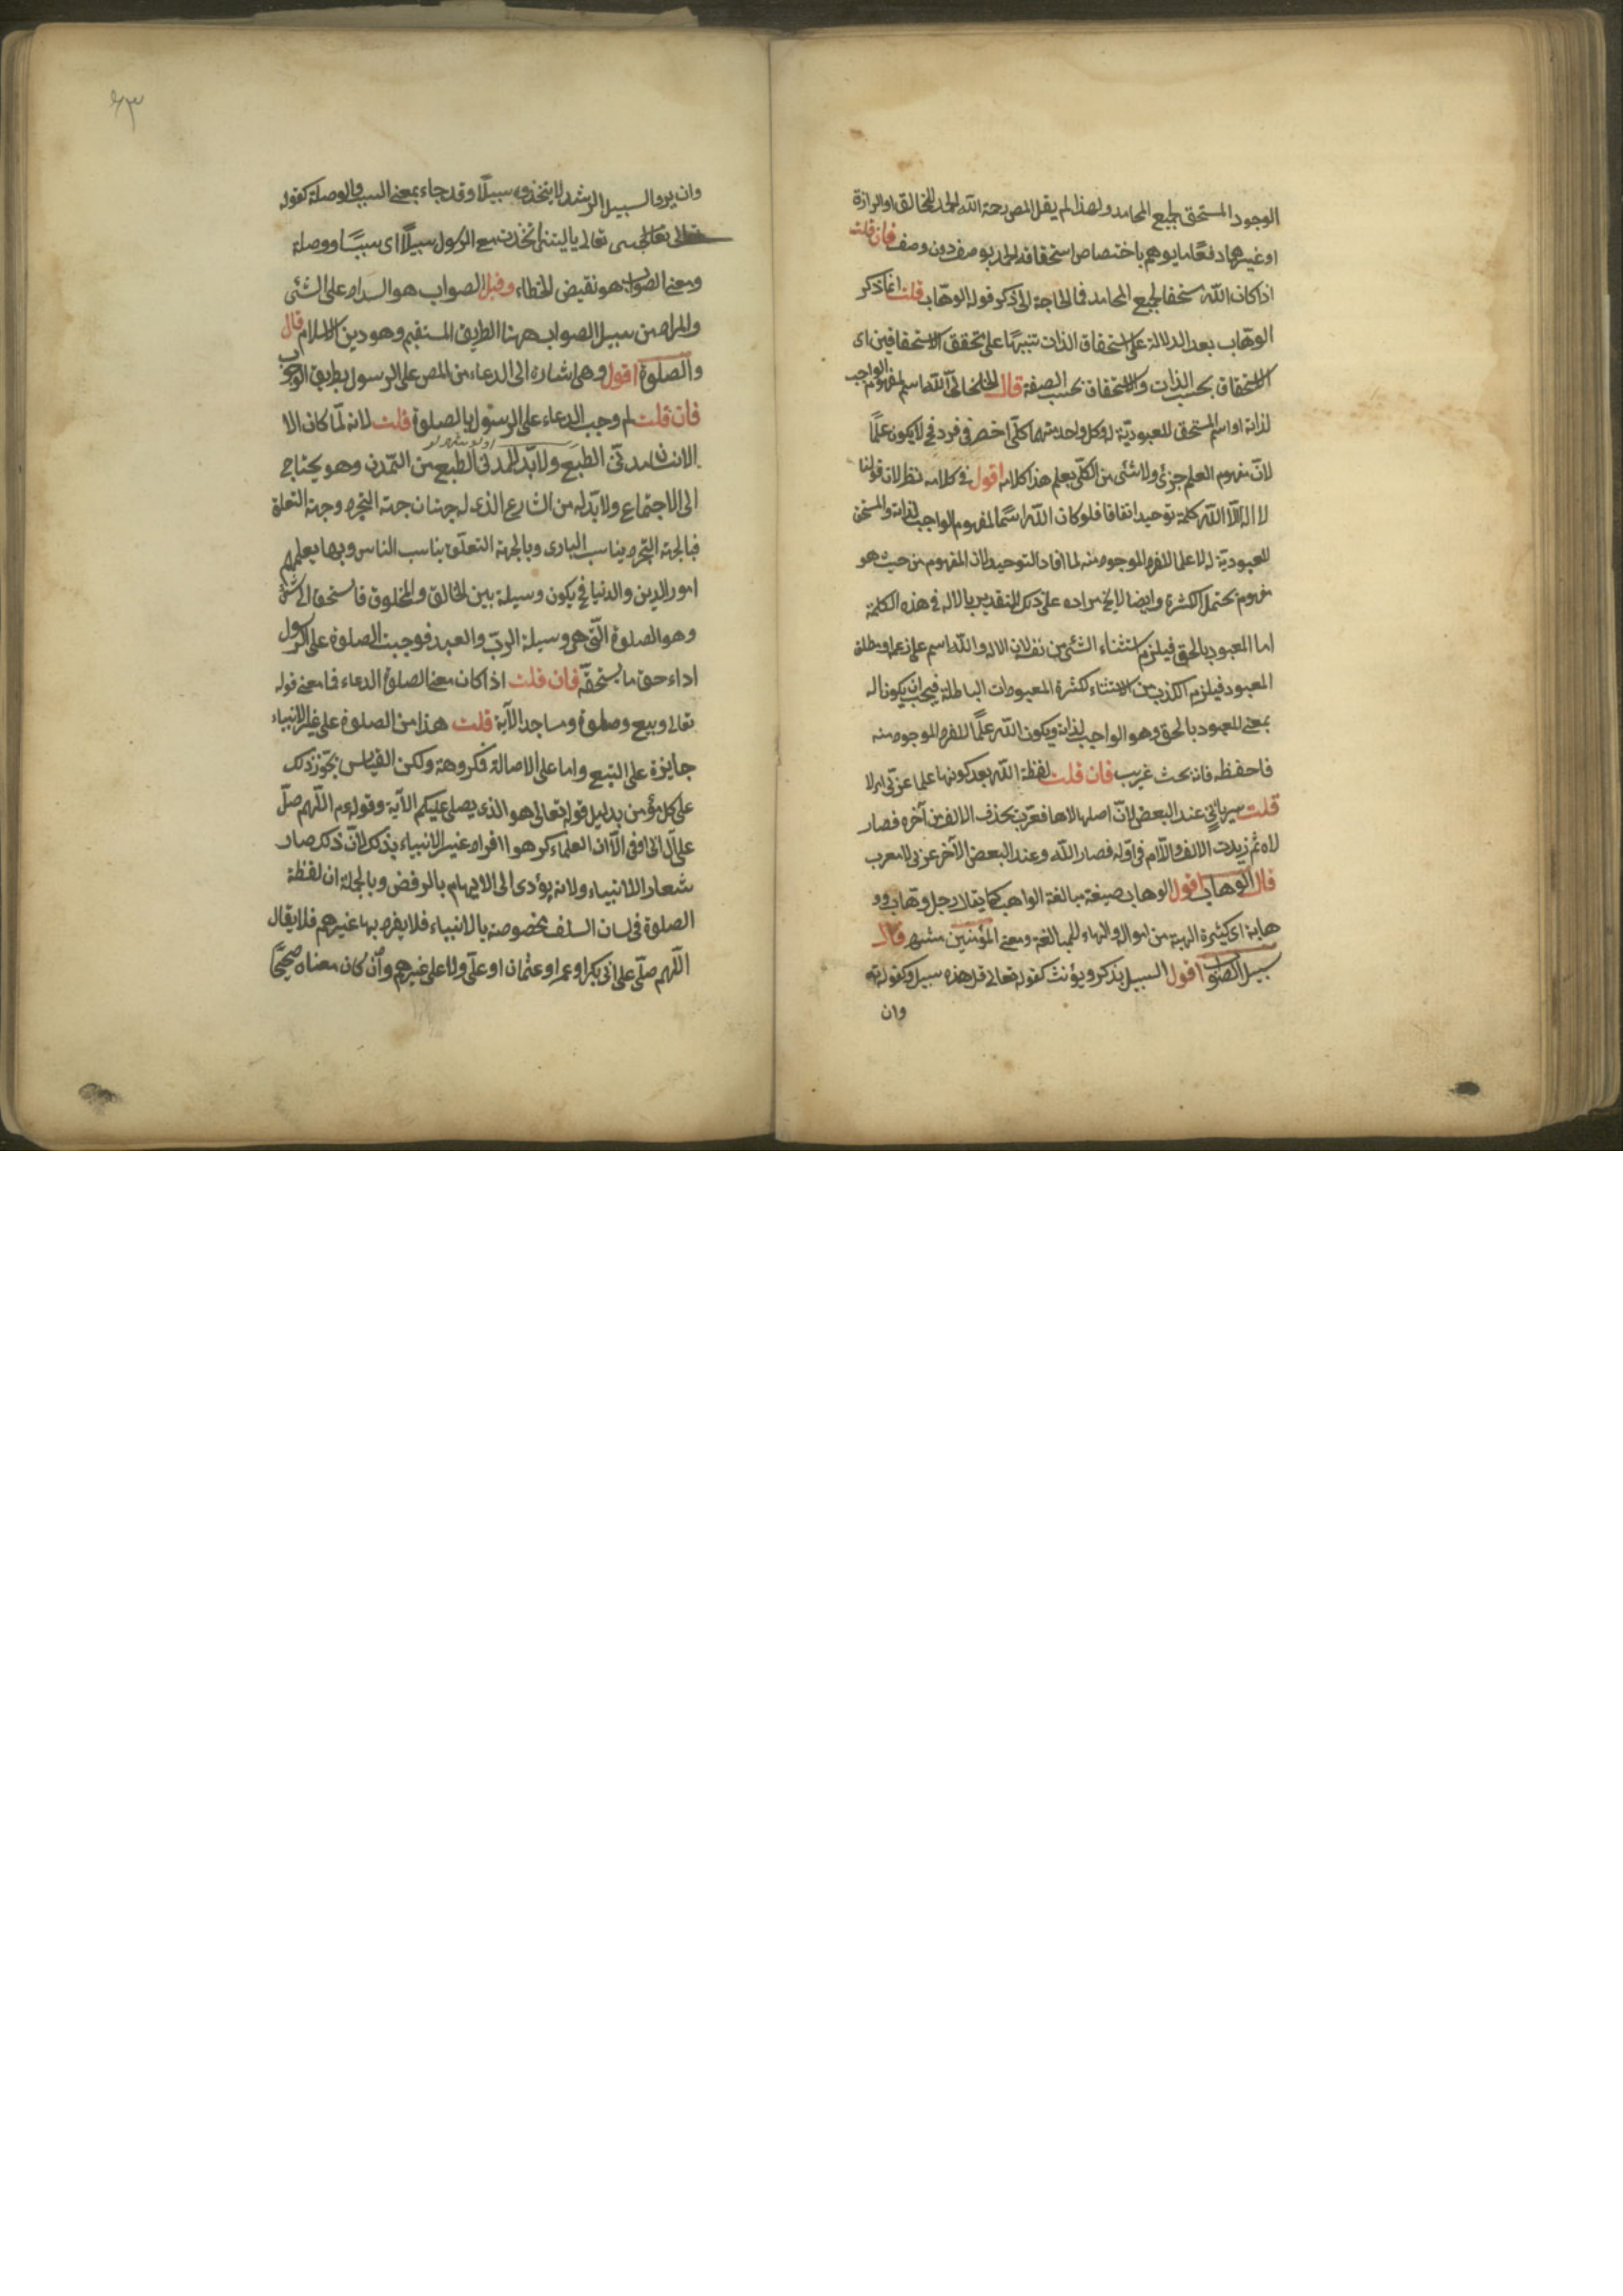 الوجود المستحق لجميع المحامد ولهذا لم يقل المص رحمة الله الحمد للخالق او الرازق
او غيرهما دفعا لما يوهم باختصاص استحقاقه الحمد بوصف دون وصف فان قلت
اذا كان الله مستحقا لجميع المحامد فما الحاجة الى ذكر قوله الوهاب قلت انما ذكر
الوهاب بعد الدلالة على استحقاق الذات تنبيها على تحقق الاستحقاقين اى
الاستحقاق بحسب الذات والاستحقاق بحسب الصفة قال الخلخالى الله اسم لمفهوم الواجب
لذاته او اسم المستحق للعبودية له وكل واحد منهما كلّى انحصر فى فرد فح لا يكون علمًا
لانّ مفهوم العلم جزئ ولا شئ من الكلّى بعلم هذا كلامه اقول فى كلامه نظر لان قولنا
لا اله الّا الله كلمة توحيد اتفاقا فلو كان الله اسمًا لمفهوم الواجب لذاته والمستحق
للعبوديّة له لا علما للفرد الموجود منه لما افاد التوحيد لان المفهوم من حيث هو
مفهوم يحتمل الكثرة وايضا لا يخ مراده على ذلك التقدير بالاله فى هذه الكلمة
اما المعبود بالحق فيلزم استثناء الشئ من نفسه لان الاله والله اسم على زعمه او مطلق
المعبود فيلزم الكذب من الاستثناء لكثرة المعبودات الباطلة فيجب ان يكون اله
بمعنى المعبود بالحق وهو الواجب لذاته ويكون الله علمًا للفرد الموجود منه
فاحفظه فانه بحث غريب فان قلت لفظة الله بعد كونها علما عربى ام لا
قلت سريانى عند البعض لانّ اصلها لاها فعرّبت بحذف الالف من آخره فصار
لاه ثم زيدت الالف واللّام فى اوّله فصار الله وعند البعض الآخر عربى لا معرب
قال الوهاب اقول الوهاب صيغة مبالغة الواهب كما يقال رجل وهاب وو
هابة اى كثيرة الهبة من امواله والهاء للمبالغة ومعنى المؤمنين مشهر قال
سبيل الصواب اقول السبيل يذكر ويؤنث كقوله تعالى قل هذه سبيل وكقوله تع
وان
وان يروا سبيل الرشد لا يتخذوه سبيلًا وقد جاء بمعنى السبب والوصلة كقوله
تعالى ياليتنى اتخذت مع الرسول سبيلًا اى سببًا ووصلة
ومعنى الصواب هو نقيض الخطاء وقيل الصواب هو السداد على الشئ
والمراد من سبيل الصواب ههنا الطريق المستقيم وهو دين الاسلام قال
والصلوة اقول وهى اشارة الى الدعاء من المص على الرسول بطريق الوجوب
فان قلت لم وجب الدعاء على الرسول بالصلوة قلت لانه لمّا كان الا
الانسان مدنىّ الطبع ولا بدّ لمدنى الطبع من التمدن وهو يحتاج
الى الاجتماع ولا بدّ له من الشارع الذى له جهتان جهة التجرد وجهة التعلق
فبالجهة التجرد يناسب البارى وبالجهة التعلّق يناسب الناس وبها يعلمهم
امور الدين والدنيا فح يكون وسيلة بين الخالق والمخلوق فاستحق الى شئ
وهو الصلوة التى هى وسيلة الربّ والعبد فوجبت الصلوة على الرسول
اداء حق ما يستحقّه فان قلت اذا كان معنى الصلوة الدعاء فما معنى قوله
تعالى وبيع وصلوة ومساجد الآية قلت هذا من الصلوة على غير الانبياء
جايزة على التبع واما على الاصالة فكروهة ولكن القياس يجوّز ذلك
على كل مؤمن بدليل قوله تعالى هو الذى يصلى عليكم الآية وقوله ء م اللّهم صلّ
على آل ابى اوفى الّا ان العلماء كرهوا افراد غير الانبياء بذلك لانّ ذلك صار
شعار الانبياء ولانه يؤدى الى الاتهام بالرفض وبالجلة ان لفظة
الصلوة فى لسان السلف مخصوصة بالانبياء فلا يفرد بها غيرهم فلا يقال
اللّهم صلّى على ابى بكر او عمر او عثمان او علّى ولا على غيرهم وان كان معناه صحيحًا